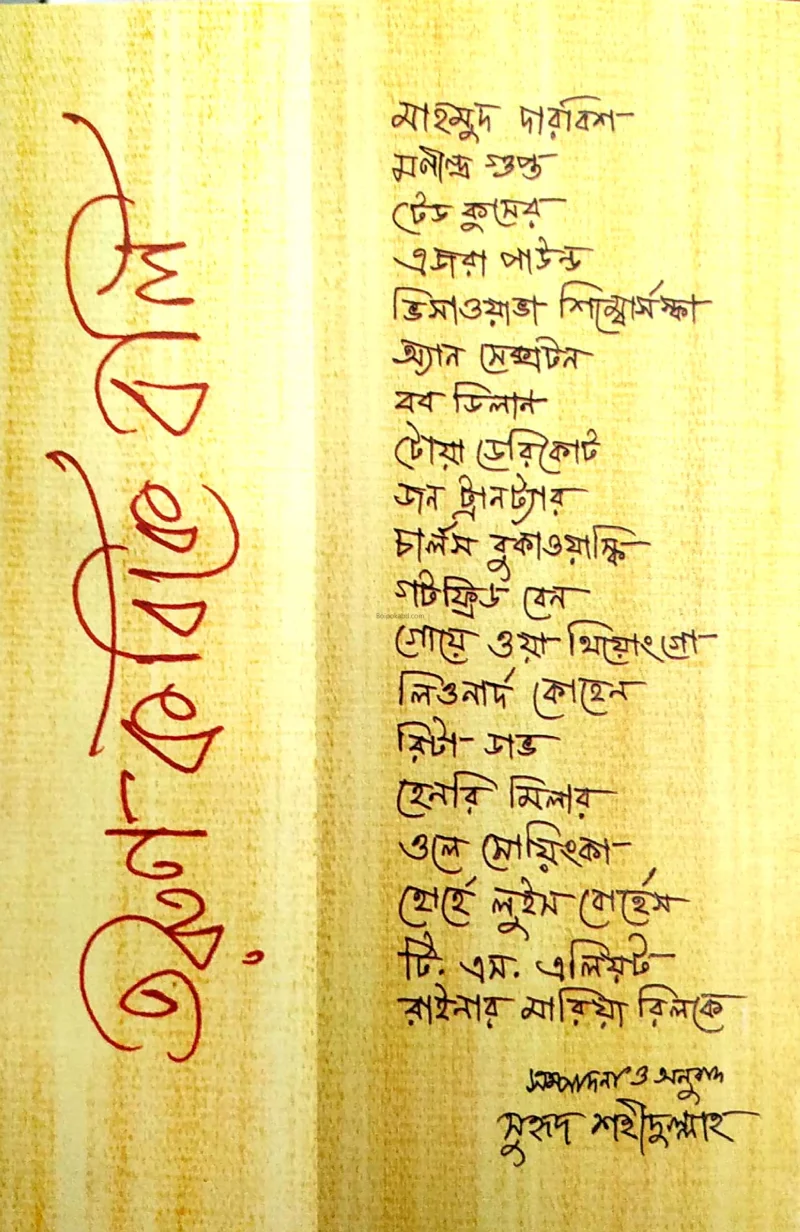 তরুণ কবিকে বলি
মাহমুদ দারবিশ
মণীন্দ্র গুপ্ত
টেড কুসের
এজরা পাউন্ড
ভিসাওয়াভা শিম্বোর্সস্কা
অ্যান সেক্সটন
বব ডিলান
টোয়া ডেরিকোট
জন ট্রানট্যার
চার্লস বুকাওয়াস্কি
গটফ্রিড বেন
গোয়ে ওয়া থিয়োংগো
লিওনার্দ কোহেন
রিটা ডাভ
হেনরি মিলার
ওলে সোয়িংকা
হোর্হে লুইস বোর্হেস
টি. এস. এলিয়ট
রাইনার মারিয়া রিলকে
সম্পাদনা ও অনুবাদ
সুহৃদ শহীদুল্লাহ